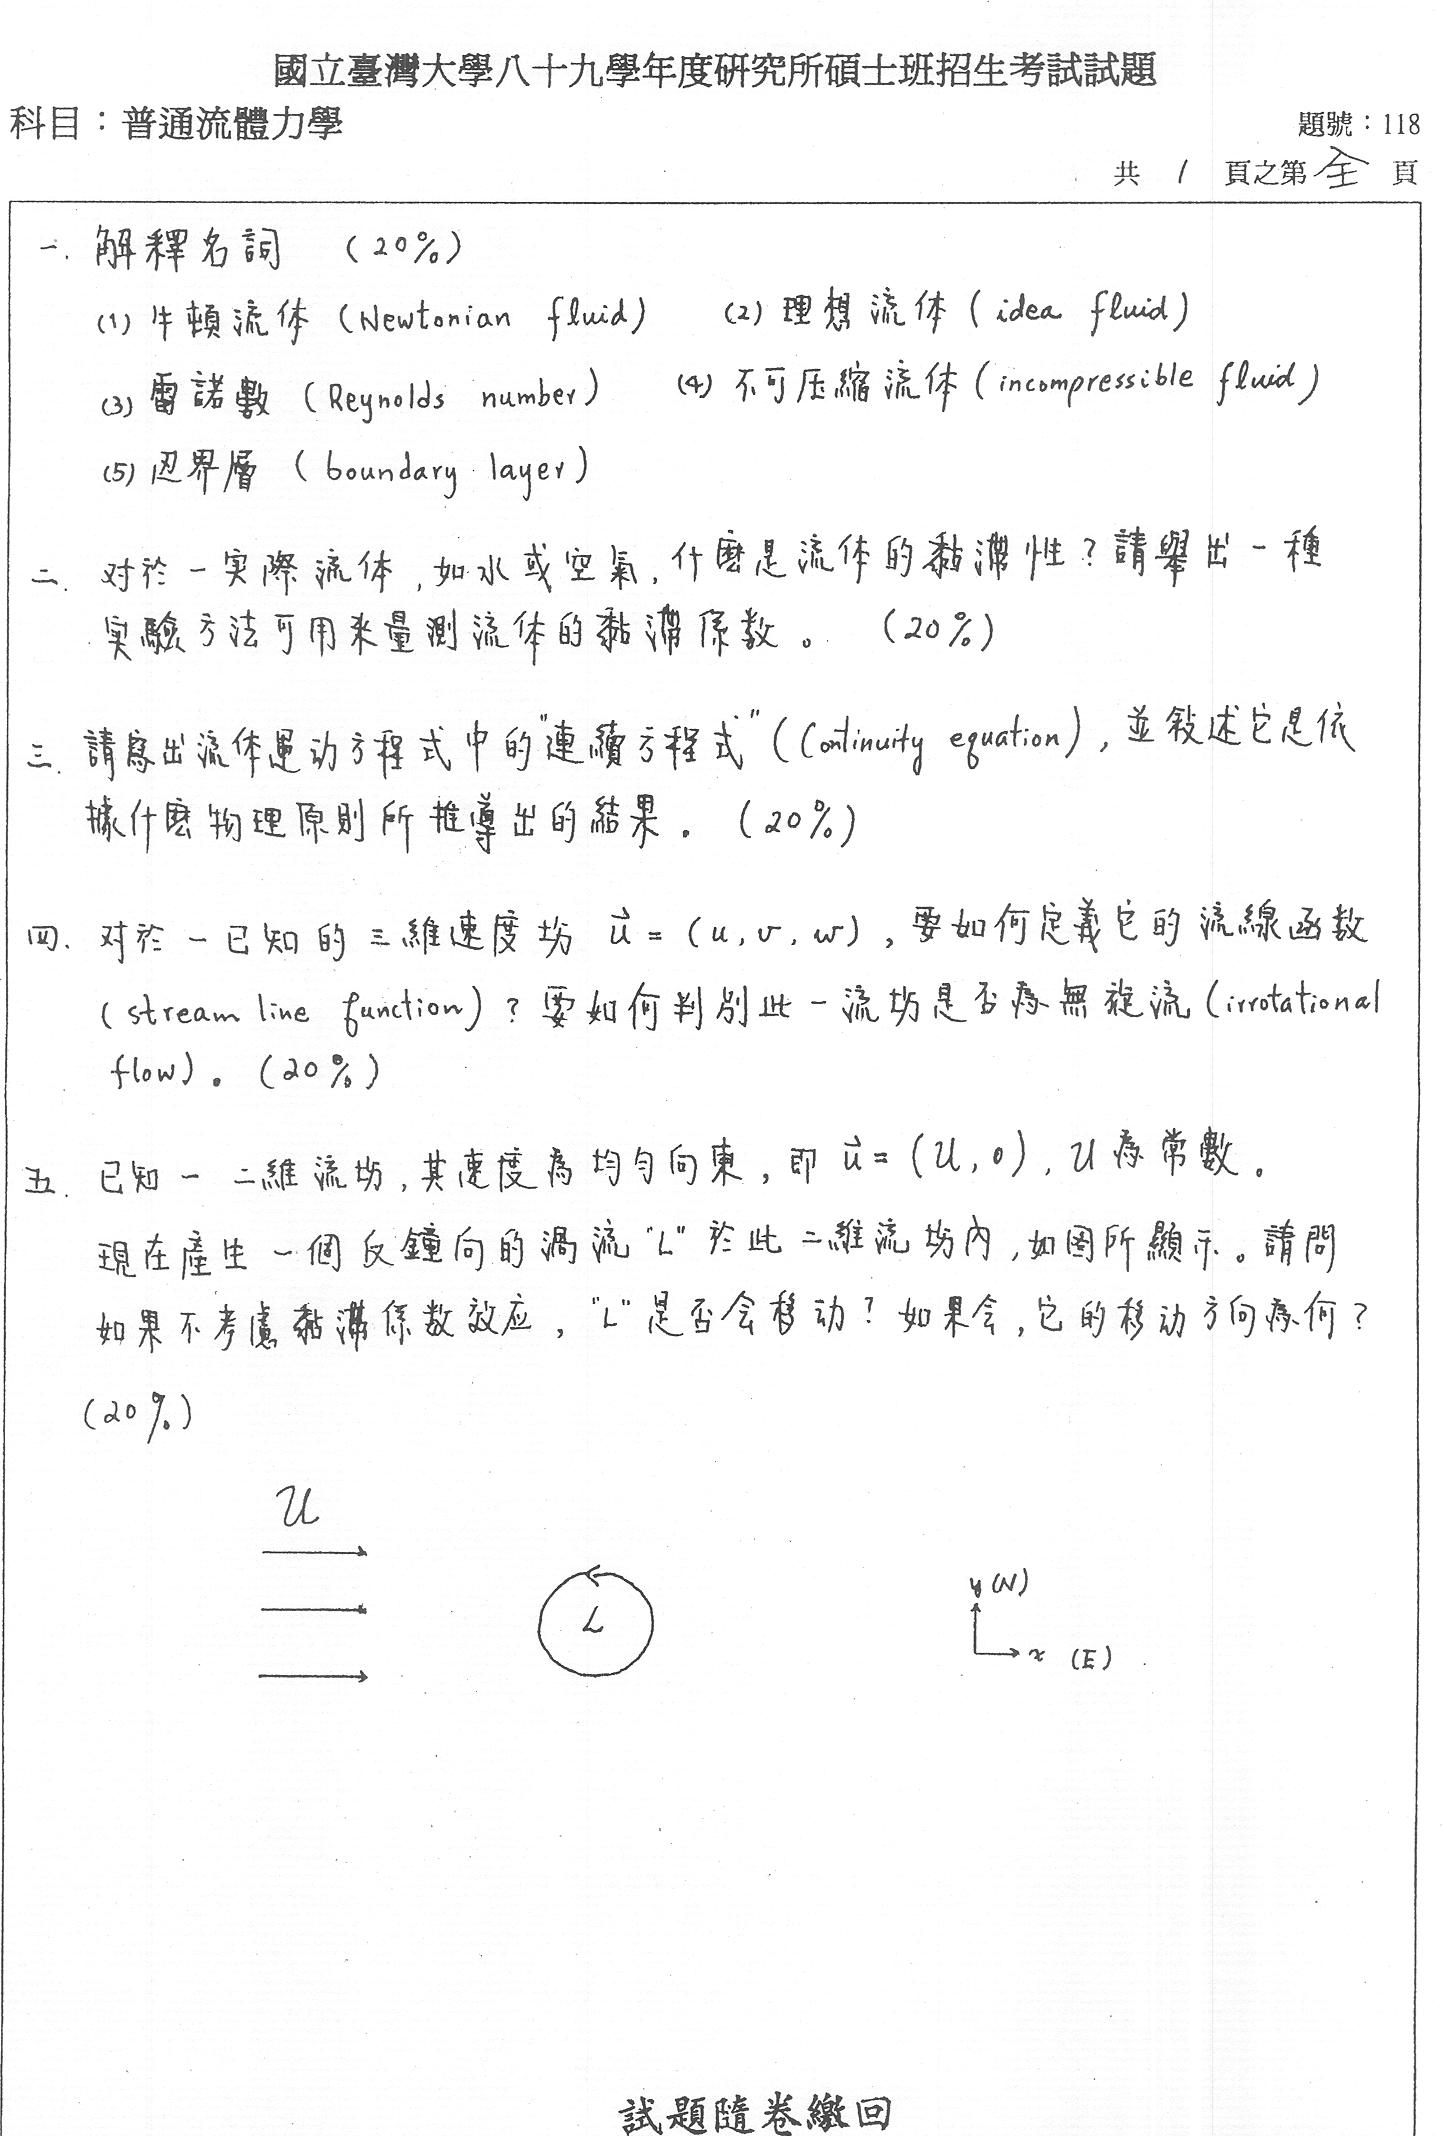 國立臺灣大學八十九學年度研究所碩士班招生考試試題
科目：普通流體力學
題號：118
共 1 頁之第 全 頁
一. 解釋名詞 (20%)
(1) 牛頓流体 (Newtonian fluid) (2) 理想流体 (idea fluid)
(3) 雷諾數 (Reynolds number) (4) 不可压縮流体 (incompressible fluid)
(5) 边界層 (boundary layer)
二. 对於一实際流体, 如水或空氣, 什麼是流体的黏滯性? 請舉出一種
实驗方法可用来量測流体的黏滯係数。 (20%)
三. 請寫出流体運动方程式中的"連續方程式" (Continuity equation), 並敍述它是依
據什麼物理原則所推導出的結果. (20%)
四. 对於一已知的三維速度場 u⃗ = (u, v, w), 要如何定義它的流線函数
(stream line function)? 要如何判別此一流場是否為無旋流 (irrotational
flow)。(20%)
五. 已知一二維流場, 其速度為均勻向東, 即 u⃗ = (U, 0), U 為常數。
現在產生一個反鐘向的渦流 "L" 於此二維流場內, 如图所顯示。請問
如果不考慮黏滯係数效应, "L" 是否会移动? 如果会, 它的移动方向為何?
(20%)
U
L
y (N)
x (E)
試題隨卷繳回